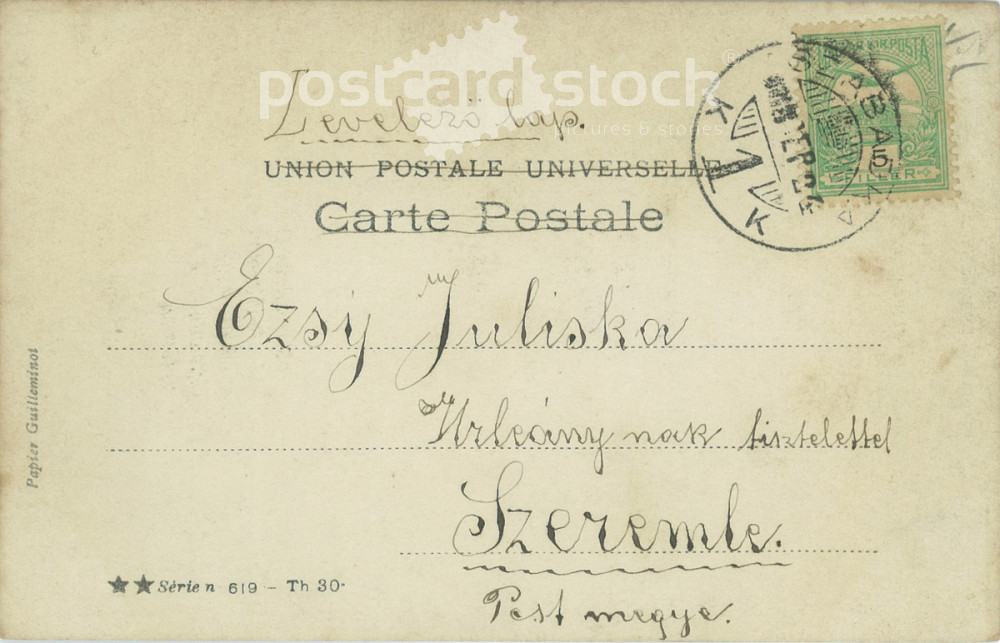 postcard stock
pictures & stories
Levelező lap.
UNION POSTALE UNIVERSELLE
Carte Postale
Ezsý Juliska
Úrleány nak tisztelettel
Szeremle.
Pest megye.
Papier Guilleminot
Série n 619 - Th 30·